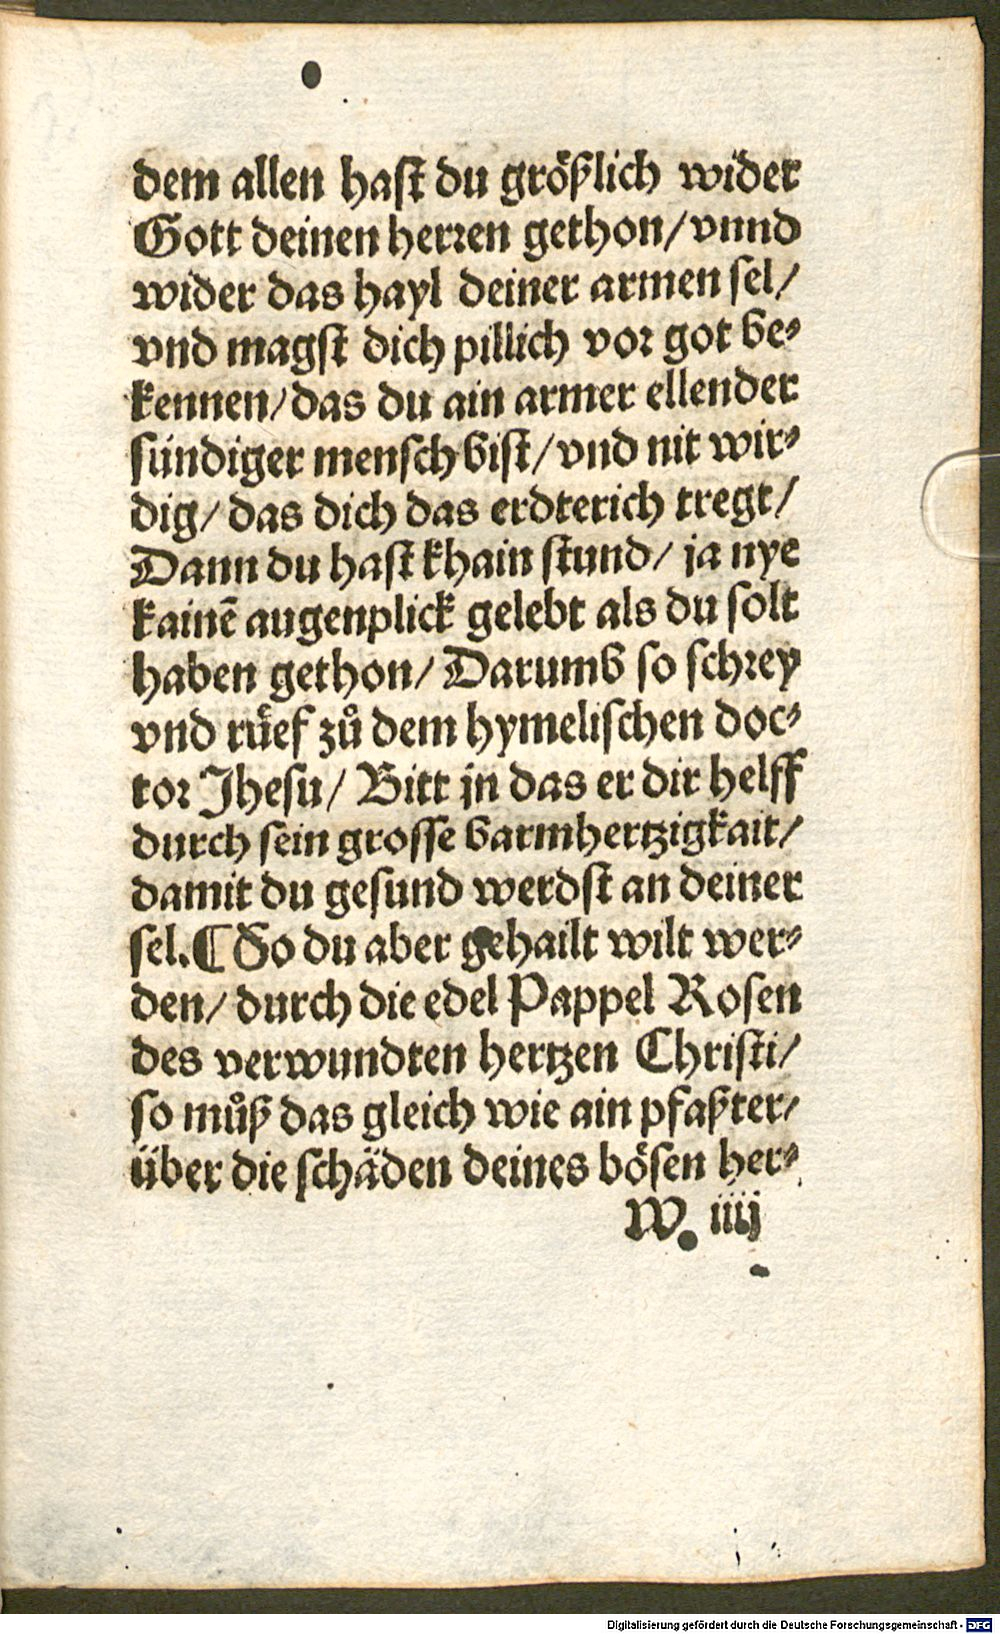 dem allen haſt du gröſzlich wider
Gott deinen herꝛen gethon/ vnnd
wider das hayl deiner armen ſel/
vnd magſt dich pillich voꝛ got be⸗
kennen/ das du ain armer ellender
ſündiger menſch biſt/ vnd nit wir⸗
dig/ das dich das erdterich tregt/
Dann du haſt khain ſtund/ ja nye
kainē augenplick gelebt als du ſolt
haben gethon/ Darumb ſo ſchꝛey
vnd rüef zů dem hymeliſchen doc⸗
toꝛ Jheſu/ Bitt jn das er dir helff
durch ſein groſſe barmhertzigkait/
damit du geſund werdſt an deiner
ſel. ¶ So du aber gehailt wilt wer⸗
den/ durch die edel Pappel Roſen
des verwundten hertzen Chriſti/
ſo můſz das gleich wie ain pfaſzter/
über die ſchäden deines böſen her⸗
W iiij
Digitalisierung gefördert durch die Deutsche Forschungsgemeinschaft - DFG